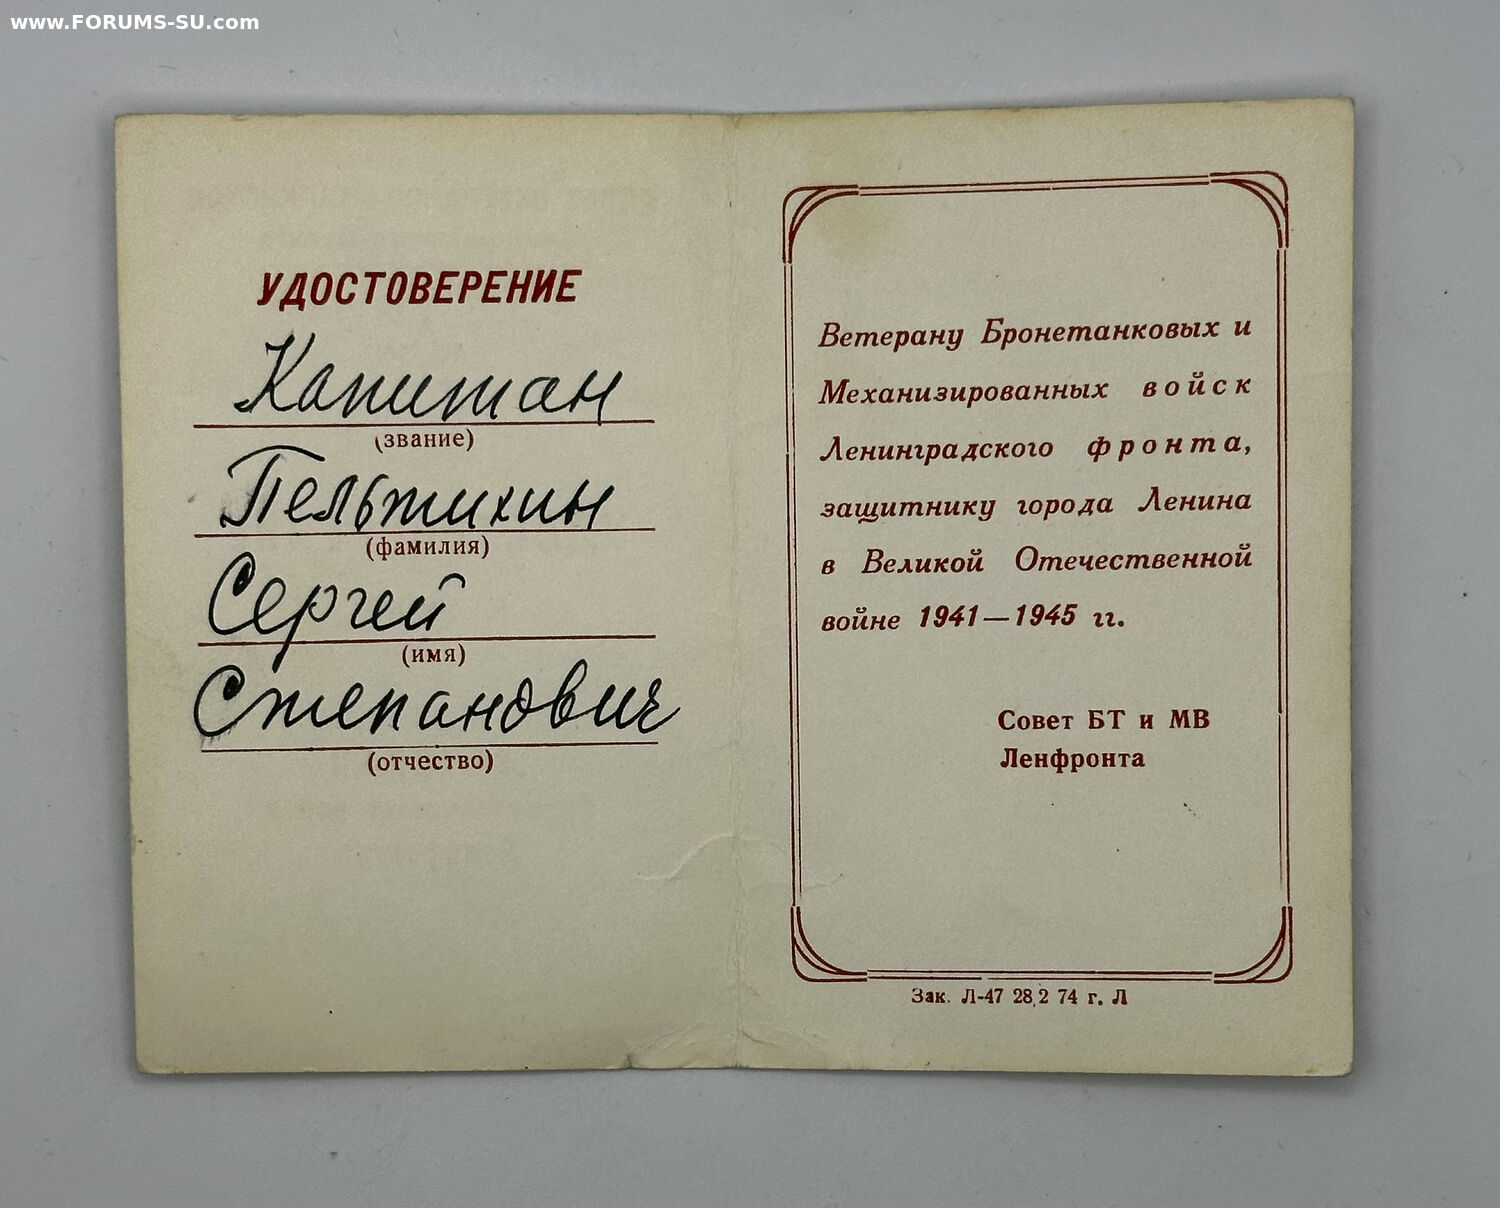 www.FORUMS-SU.com
УДОСТОВЕРЕНИЕ
Капитан
(звание)
Пельтихин
(фамилия)
Сергей
(имя)
Степанович
(отчество)
Ветерану Бронетанковых и
Механизированных войск
Ленинградского фронта,
защитнику города Ленина
в Великой Отечественной
войне 1941—1945 гг.
Совет БТ и МВ
Ленфронта
Зак. Л-47 28.2 74 г. Л